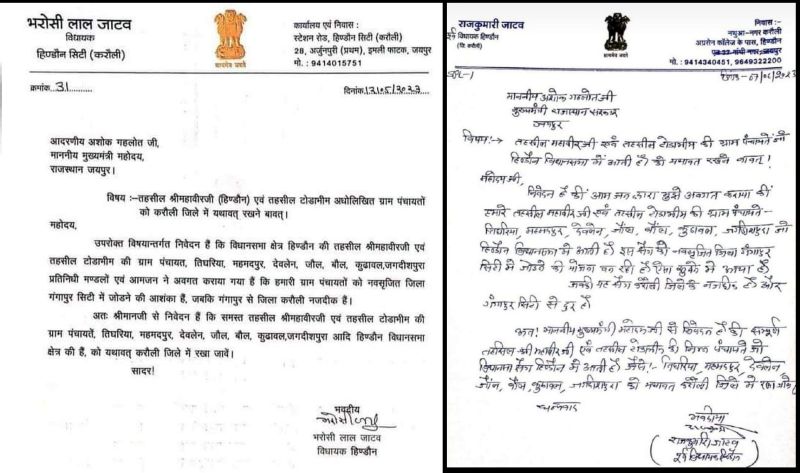 भरोसी लाल जाटव
विधायक
हिण्डौन सिटी (करौली)
सत्यमेव जयते
कार्यालय एवं निवास :
स्टेशन रोड, हिण्डौन सिटी (करौली)
28, अर्जुनपुरी (प्रथम), इमली फाटक, जयपुर
मो. : 9414015751
क्रमांक 31
दिनांक 13/05/2023
आदरणीय अशोक गहलोत जी,
माननीय मुख्यमंत्री महोदय,
राजस्थान जयपुर।
विषय :–तहसील श्रीमहावीरजी (हिण्डौन) एवं तहसील टोडाभीम अधोलिखित ग्राम पंचायतों
को करौली जिले में यथावत् रखने बावत्।
महोदय,
उपरोक्त विषयान्तर्गत निवेदन हैं कि विधानसभा क्षेत्र हिण्डौन की तहसील श्रीमहावीरजी एवं
तहसील टोडाभीम की ग्राम पंचायत, तिघरिया, महमदपुर, देवलेन, जौल, बौल, कुढावल,जगदीशपुरा
प्रतिनिधी मण्डलों एवं आमजन ने अवगत कराया गया हैं कि हमारी ग्राम पंचायतों को नवसृजित जिला
गंगापुर सिटी में जोडने की आशंका हैं, जबकि गंगापुर से जिला करौली नजदीक हैं।
अतः श्रीमानजी से निवेदन हैं कि समस्त तहसील श्रीमहावीरजी एवं तहसील टोडाभीम की
ग्राम पंचायतें, तिघरिया, महमदपुर, देवलेन, जौल, बौल, कुढावल,जगदीशपुरा आदि हिण्डौन विधानसभा
क्षेत्र की हैं, को यथावत् करौली जिले में रखा जावें।
सादर!
भवदीय
भरोसी लाल जाटव
विधायक हिण्डौन
राजकुमारी जाटव
पूर्व विधायक हिण्डौन
(जि. करौली)
सत्यमेव जयते
निवास :-
नयुआ-नगर करौली
अग्रसेन कॉलेज के पास, हिण्डौन
मो. : 9414340451, 9649322200
माननीय अशोक गहलोत जी
मुख्यमंत्री राजस्थान सरकार
जयपुर
विषय:→ तहसील महावीर जी एवं तहसील टोडाभीम की ग्राम पंचायतें जो
हिण्डौन विधानसभा में आती है को यथावत रखने बावत्!
महोदय जी,
निवेदन है की आम जन द्वारा मुझे अवगत कराया की
हमारे तहसील महावीर जी एवं तहसील टोडाभीम की ग्राम पंचायत-
तिघरिया, महमदपुर, देवलेन, जौल, बौल, कुढावल, जगदीशपुरा जो
हिण्डौन विधानसभा में आती है इस क्षेत्र को नवसृजित जिला गंगापुर
सिटी में जोडने की योजना चल रही है ऐसा सुनने में आया है
जबकी यह क्षेत्र करौली जिले के नजदीक है और
गंगापुर सिटी से दूर है
अतः माननीय मुख्यमंत्री महोदय जी से निवेदन है की सम्पूर्ण
तहसील श्री महावीर जी एवं तहसील टोडाभीम की जिन पंचायतें जो
विधानसभा क्षेत्र हिण्डौन में आती है जैसे:- तिघरिया, महमदपुर, देवलेन
जौल, बौल, कुढावल, जगदीशपुरा को यथावत करौली जिले में रखा जावे
धन्यवाद
भवदीया
राजकुमारी जाटव
पूर्व विधायक हिण्डौन